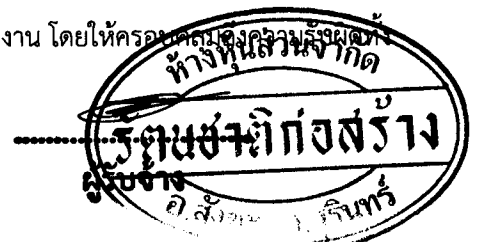 งาน โดยให้ครอบคลุมถึงความรับผิดทั้ง
ห้างหุ้นส่วนจำกัด
รัตนชาติก่อสร้าง
ผู้รับจ้าง
อ.สังขะ จ.สุรินทร์